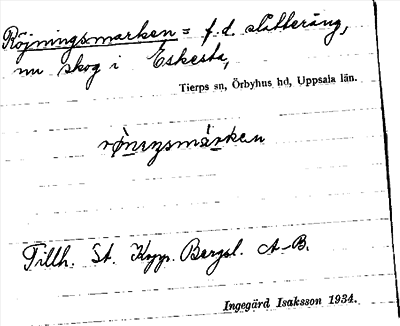 Röjningsmarken = f. d. slåtteräng,
nu skog i Eskesta,
Tierps sn, Örbyhus hd, Uppsala län.
Tillh. St. Kopp. Bergsl. A-B.
Ingegärd Isaksson 1934.